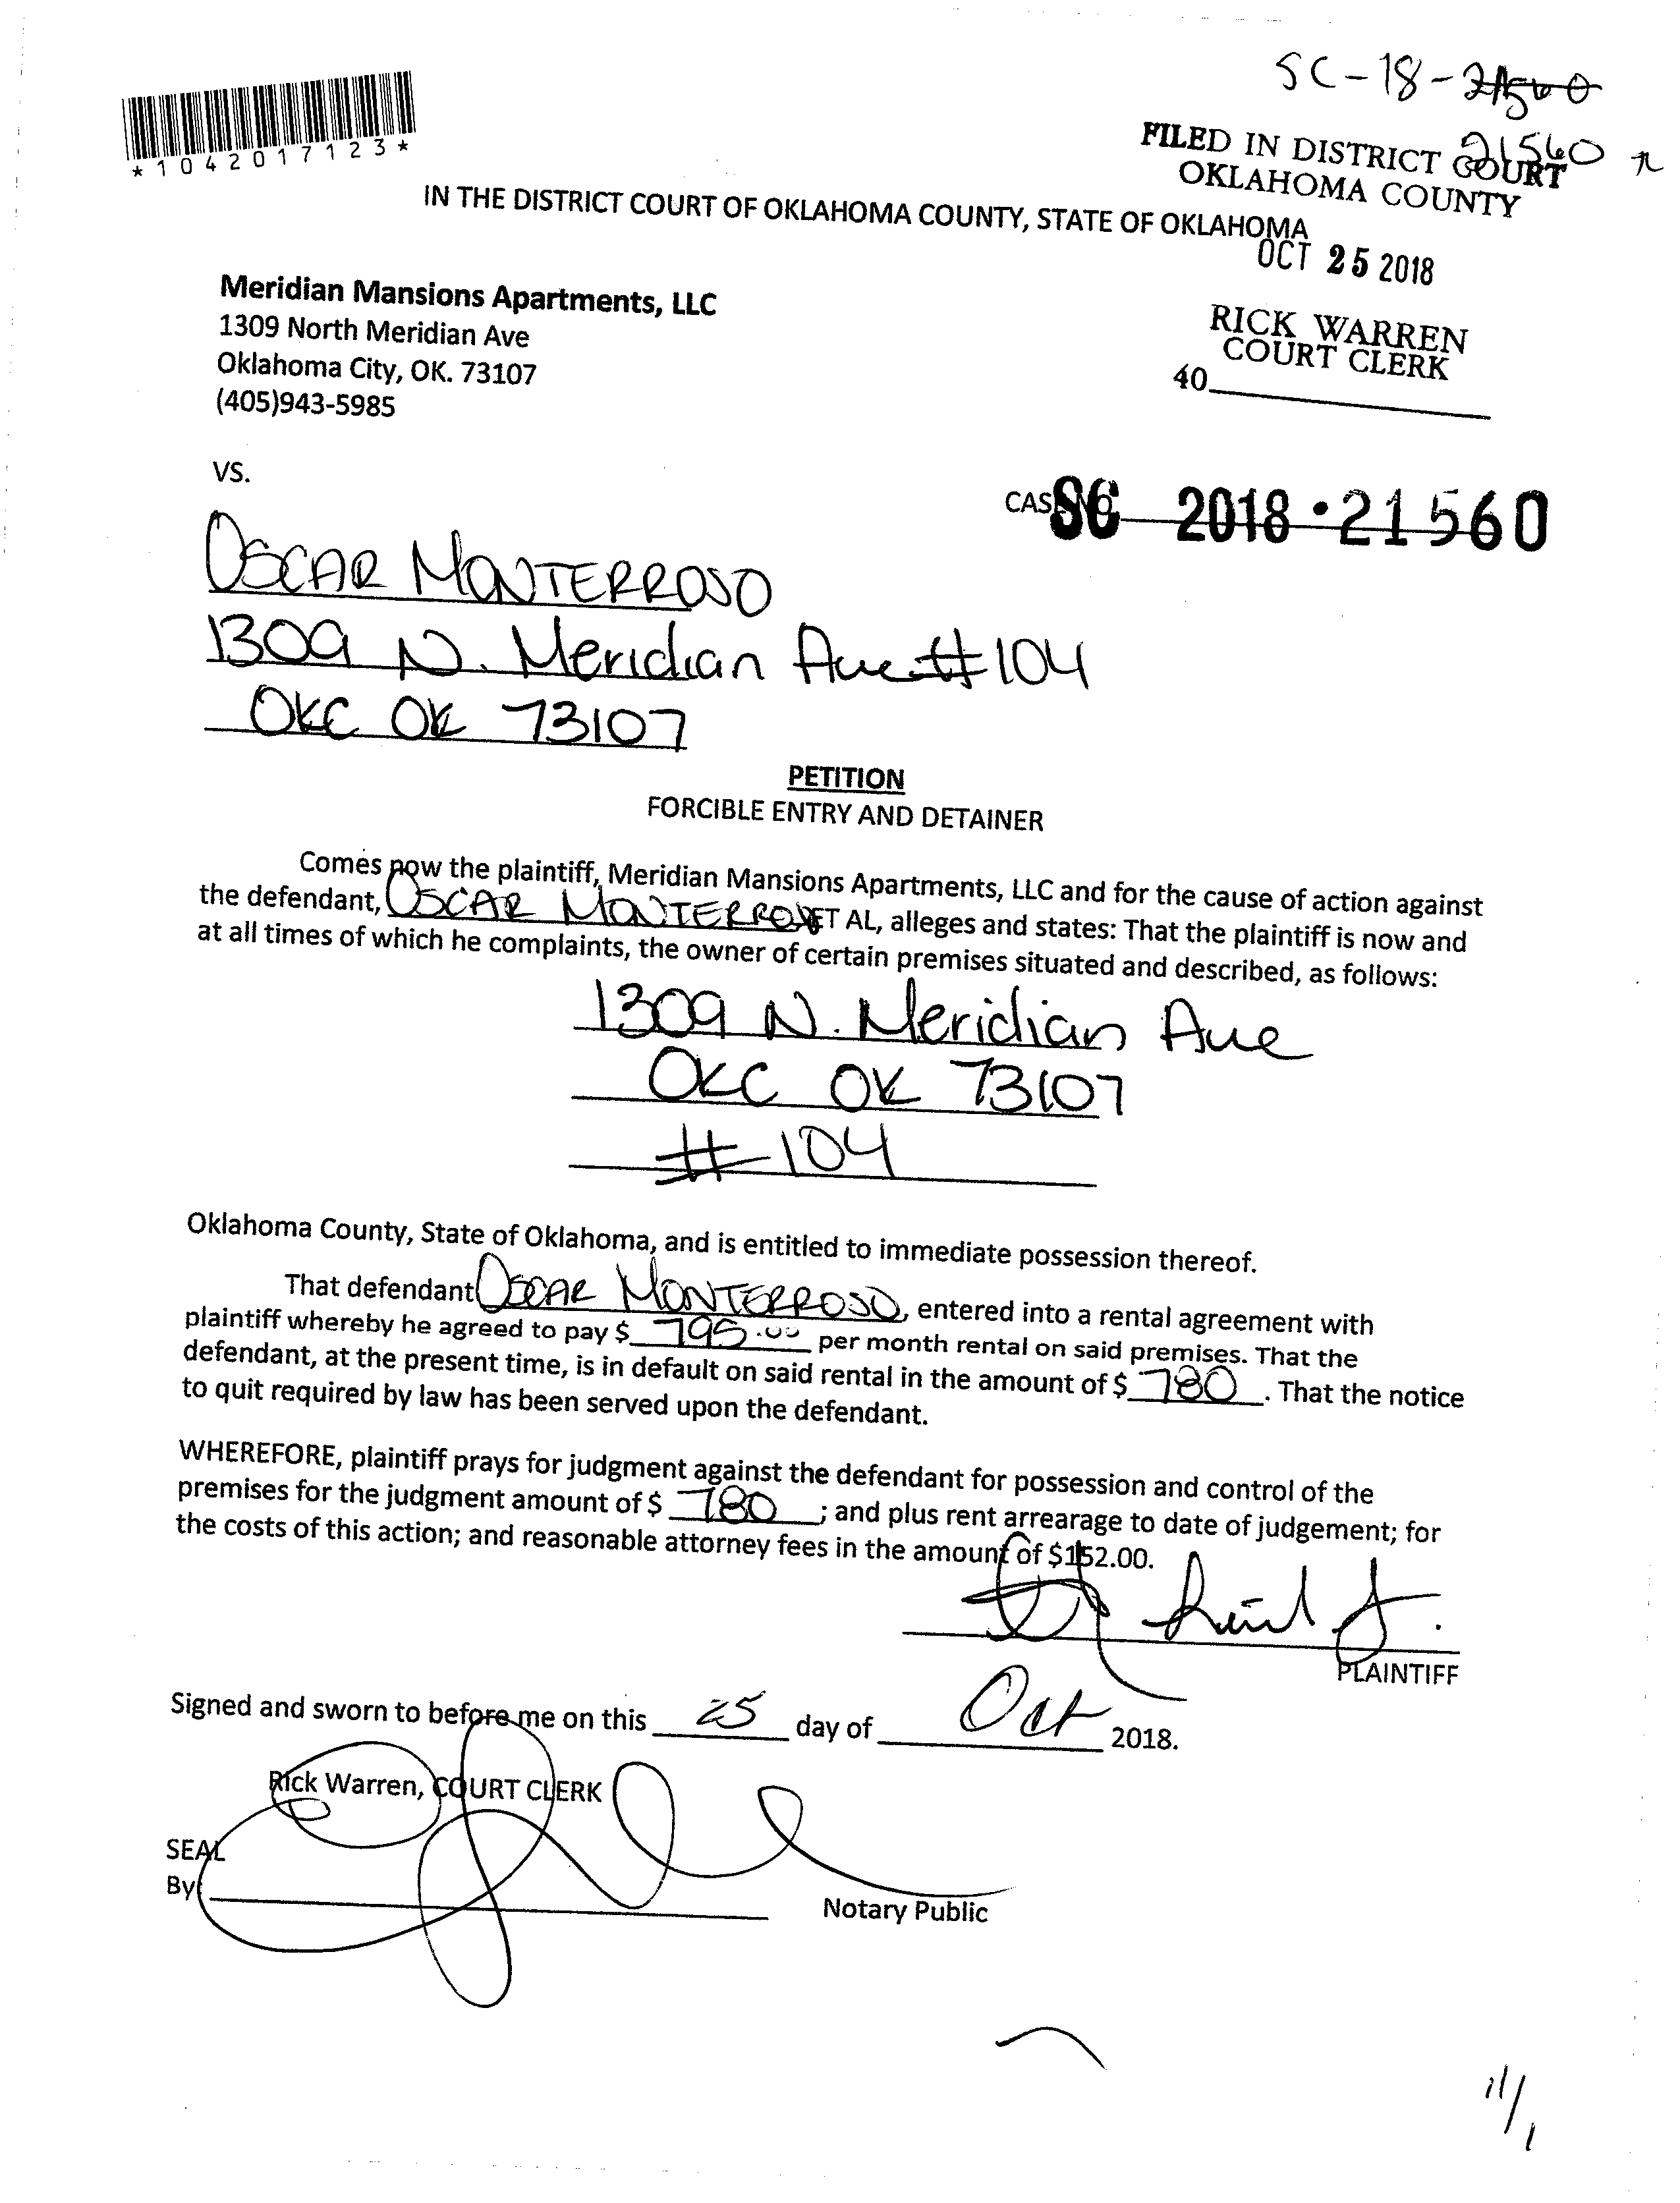 SC-18-21560
21560
*1042017123*
FILED IN DISTRICT COURT
OKLAHOMA COUNTY
IN THE DISTRICT COURT OF OKLAHOMA COUNTY, STATE OF OKLAHOMA
OCT 25 2018
RICK WARREN
COURT CLERK
40
Meridian Mansions Apartments, LLC
1309 North Meridian Ave
Oklahoma City, OK. 73107
(405)943-5985
VS.
CASE NO. SC 2018 · 21560
OSCAR MONTERROSO
1309 N. Meridian Ave #104
OKC OK 73107
PETITION
FORCIBLE ENTRY AND DETAINER
Comes now the plaintiff, Meridian Mansions Apartments, LLC and for the cause of action against
the defendant, OSCAR MONTERROSO ET AL, alleges and states: That the plaintiff is now and
at all times of which he complaints, the owner of certain premises situated and described, as follows:
1309 N. Meridian Ave
OKC OK 73107
#104
Oklahoma County, State of Oklahoma, and is entitled to immediate possession thereof.
That defendant OSCAR MONTERROSO, entered into a rental agreement with
plaintiff whereby he agreed to pay $ 795.00 per month rental on said premises. That the
defendant, at the present time, is in default on said rental in the amount of $ 780. That the notice
to quit required by law has been served upon the defendant.
WHEREFORE, plaintiff prays for judgment against the defendant for possession and control of the
premises for the judgment amount of $ 780; and plus rent arrearage to date of judgement; for
the costs of this action; and reasonable attorney fees in the amount of $152.00.
PLAINTIFF
Signed and sworn to before me on this 25 day of Oct 2018.
Rick Warren, COURT CLERK
SEAL
By
Notary Public
11/1